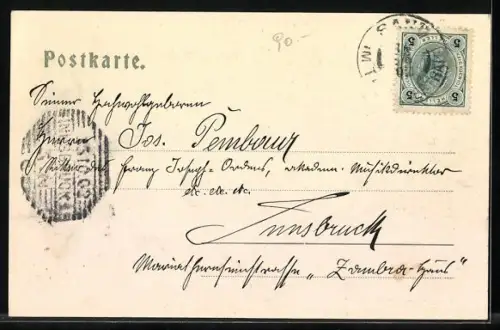 90.-
Postkarte.
5 5
5 5
Seiner Hochwohlgeboren
Herrn Jos. Pembaur
Ritter des Franz Josefs-Ordens, akadem. Musikdirektor
etc. etc. etc.
Innsbruck
Mariatheresienstrasse „Zambra-Haus"